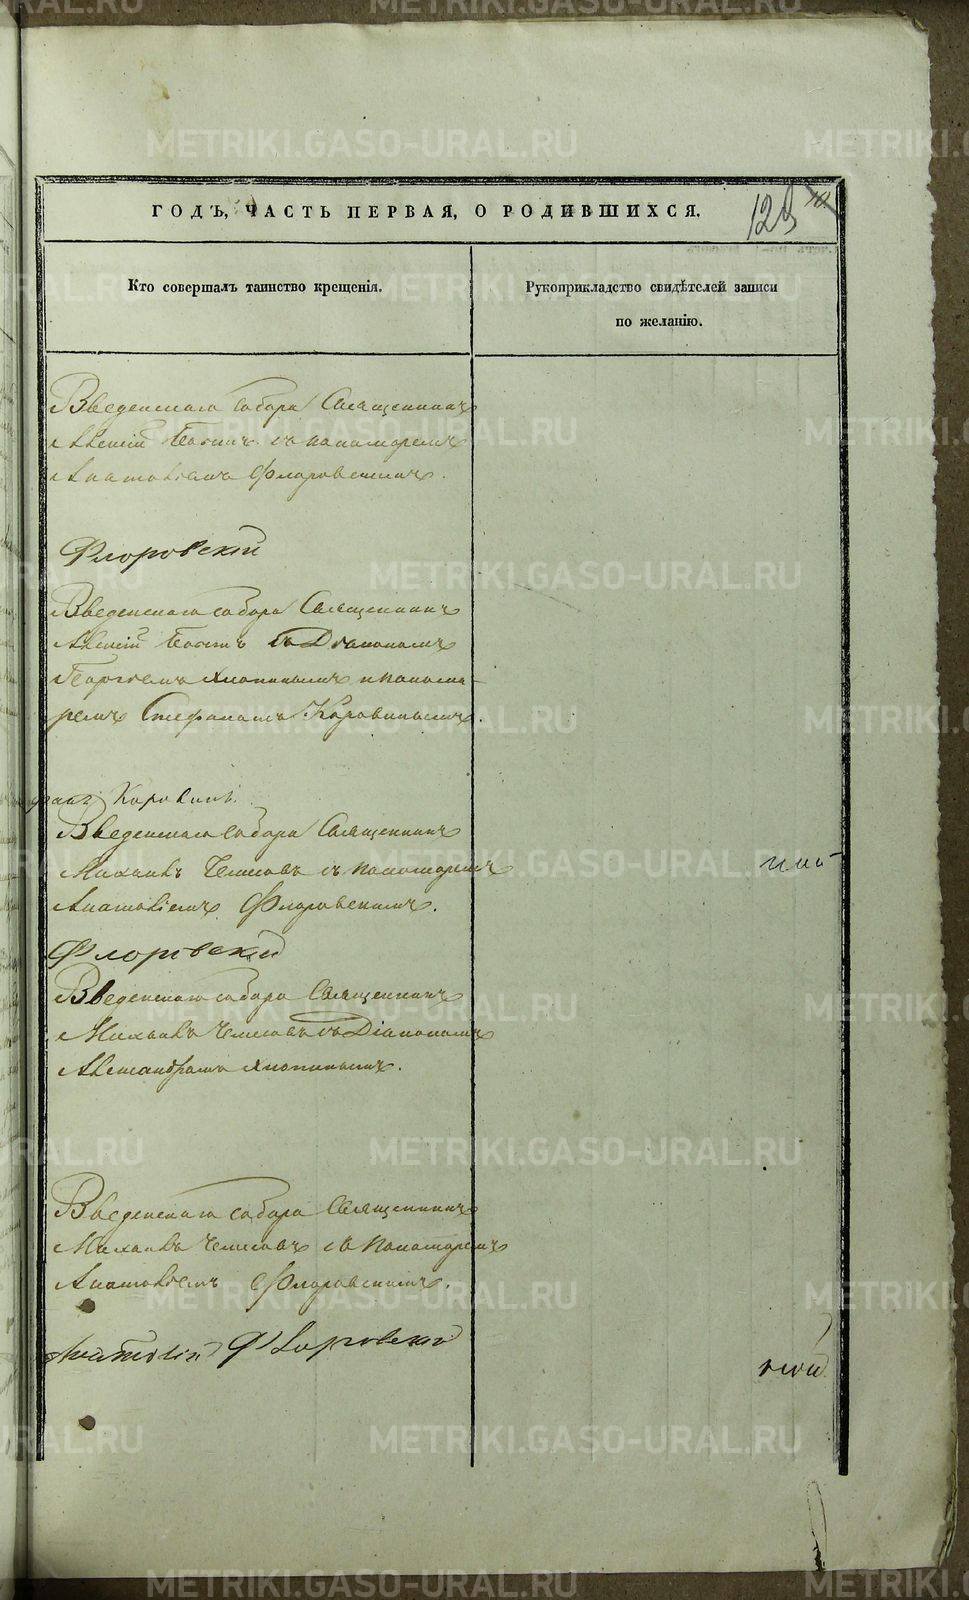 ГОДЪ, ЧАСТЬ ПЕРВАЯ, О РОДИВШИХСЯ.
129
Кто совершалъ таинство крещенія.
Рукоприкладство свидѣтелей записи
по желанію.
Введенскаго собора Священникъ
Алексій съ пономаремъ
Анатоліемъ Флоровскимъ.
Флоровскій
Введенскаго собора Священникъ
Алексій съ Діакономъ
Георгіемъ Хлопинымъ и понома-
ремъ Стефаномъ Коровинымъ.
Коровинъ.
Введенскаго собора Священникъ
Михаилъ съ пономаремъ
Анатоліемъ Флоровскимъ.
Флоровскій
Введенскаго собора Священникъ
Михаилъ съ Діакономъ
Александромъ Хлопинымъ.
Введенскаго собора Священникъ
Михаилъ съ пономаремъ
Анатоліемъ Флоровскимъ.
Анатолій Флоровскій
METRIKI.GASO-URAL.RU